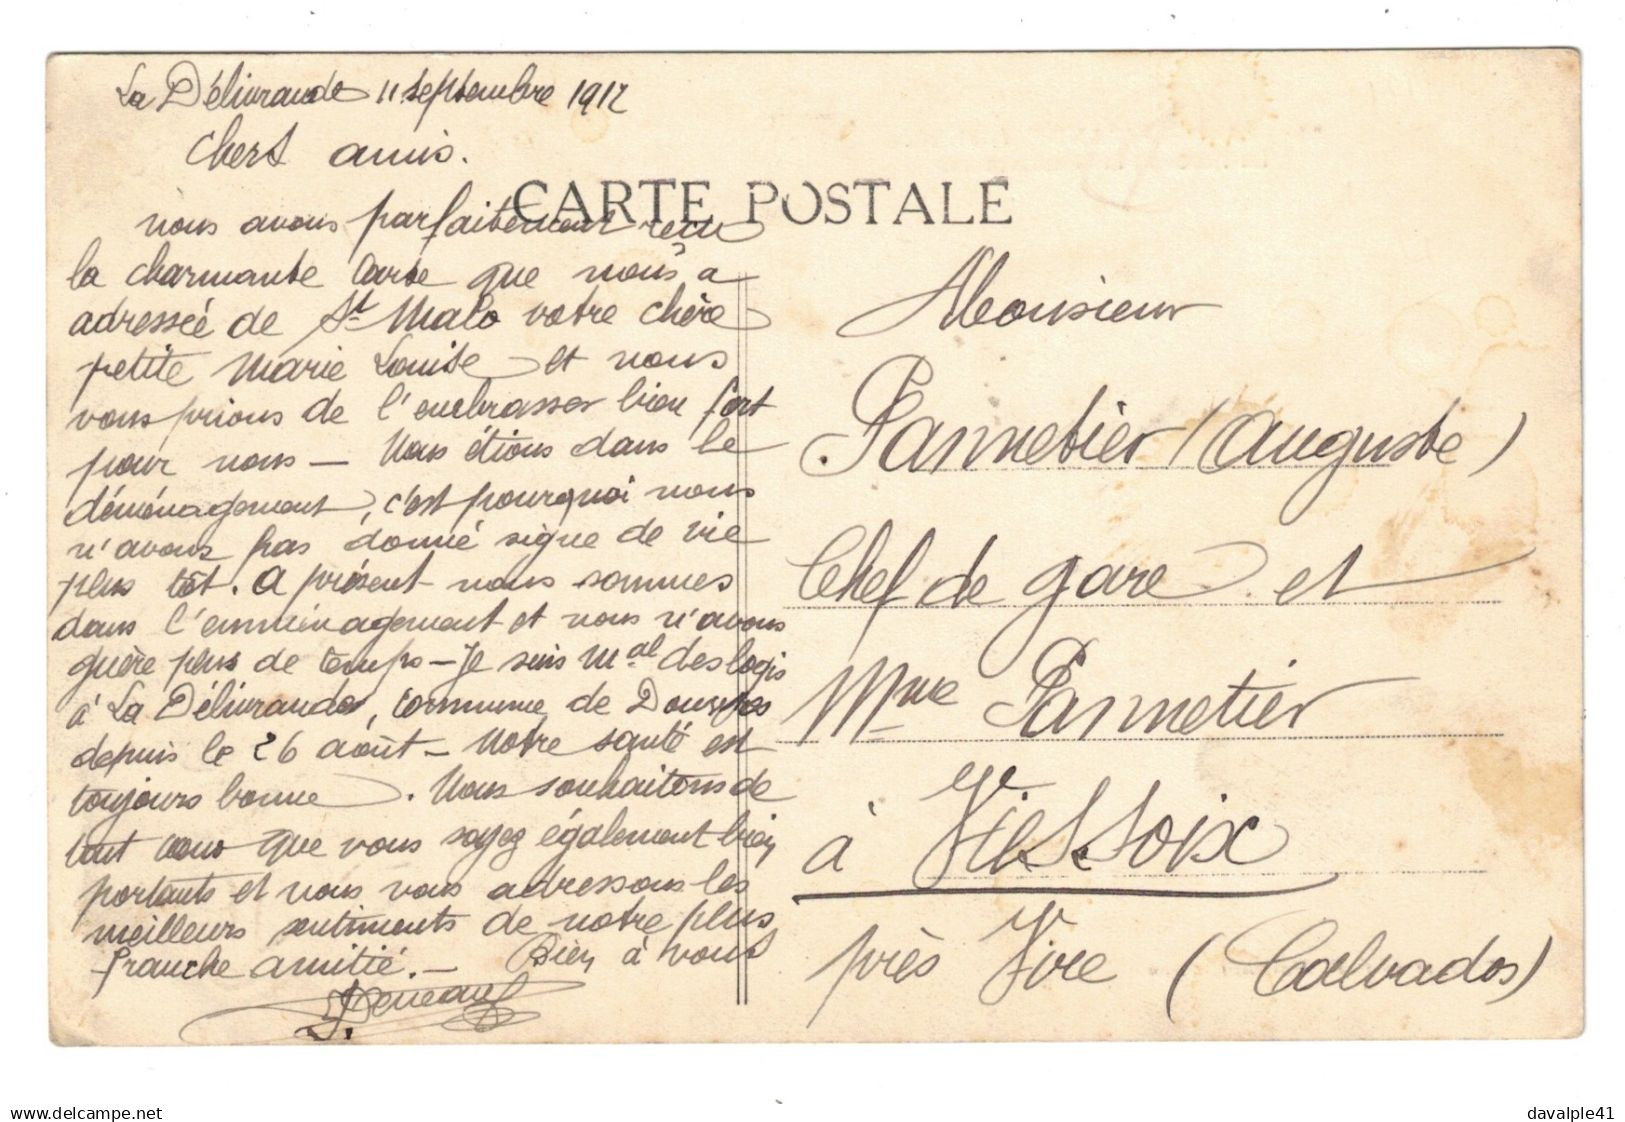 La Délivrande 11 septembre 1912
Chers amis.
CARTE POSTALE
nous avons parfaitement reçu
la charmante carte que nous a
adressée de St Malo votre chère
petite Marie Louise et nous
vous prions de l'embrasser bien fort
pour nous — Nous étions dans le
déménagement, c'est pourquoi nous
n'avons pas donné signe de vie
plus tôt. A présent nous sommes
dans l'emménagement et nous n'avons
guère plus de temps — Je suis Mal des logis
à La Délivrande, commune de Douvres
depuis le 26 août — Notre santé est
toujours bonne. Nous souhaitons de
tout cœur que vous soyez également bien
portants et nous vous adressons les
meilleurs sentiments de notre plus
franche amitié. — Bien à vous
Monsieur
Pannetier (Auguste)
Chef de gare et
Mme Pannetier
à Viessoix
près Vire (Calvados)
www.delcampe.net
davalple41